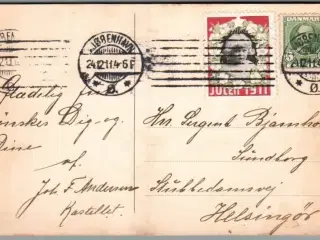 KJØBENHAVN
24.12.11.4-6 F
Ø.
JULEN 1911
DANMARK
24.12.11.4
Ø.
Glædelig
ønskes Dig og
Dine
af
Joh. F. Andersen
Kastellet.
Hr. Sergent Bjarnhof
Sundborg
Stubbedamsvej
Helsingör